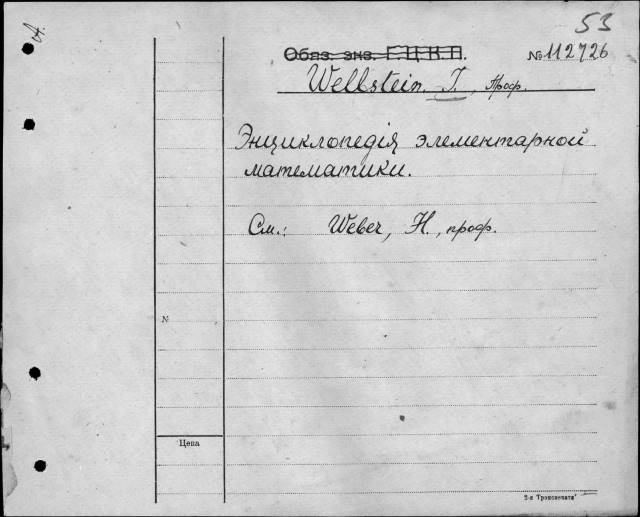 53
Обяз. экз. Г.Ц.К.П.
№ 112726
Wellstein. J., проф.
Энциклопедія элементарной
математики.
См.: Weber, H., проф.
N
Цена